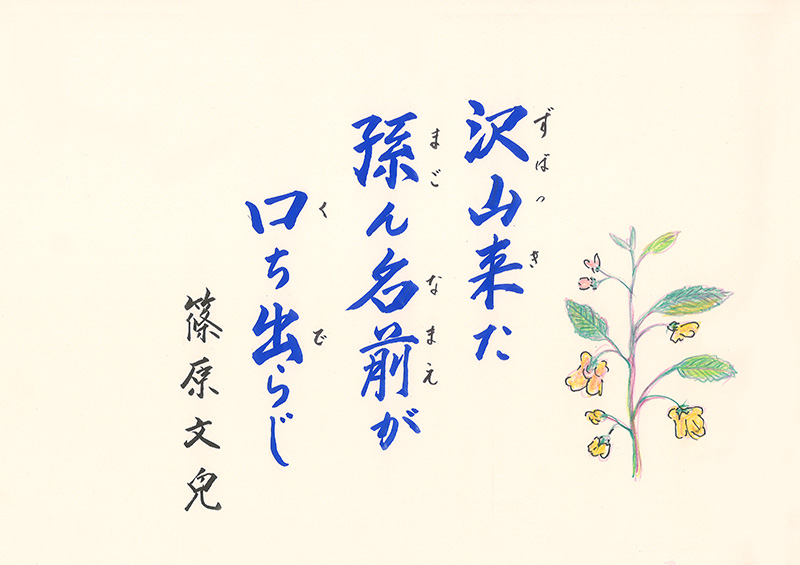 沢山来た
ずばっ
き
孫ん名前が
まご
なまえ
口ち出らじ
く
で
篠原文兒